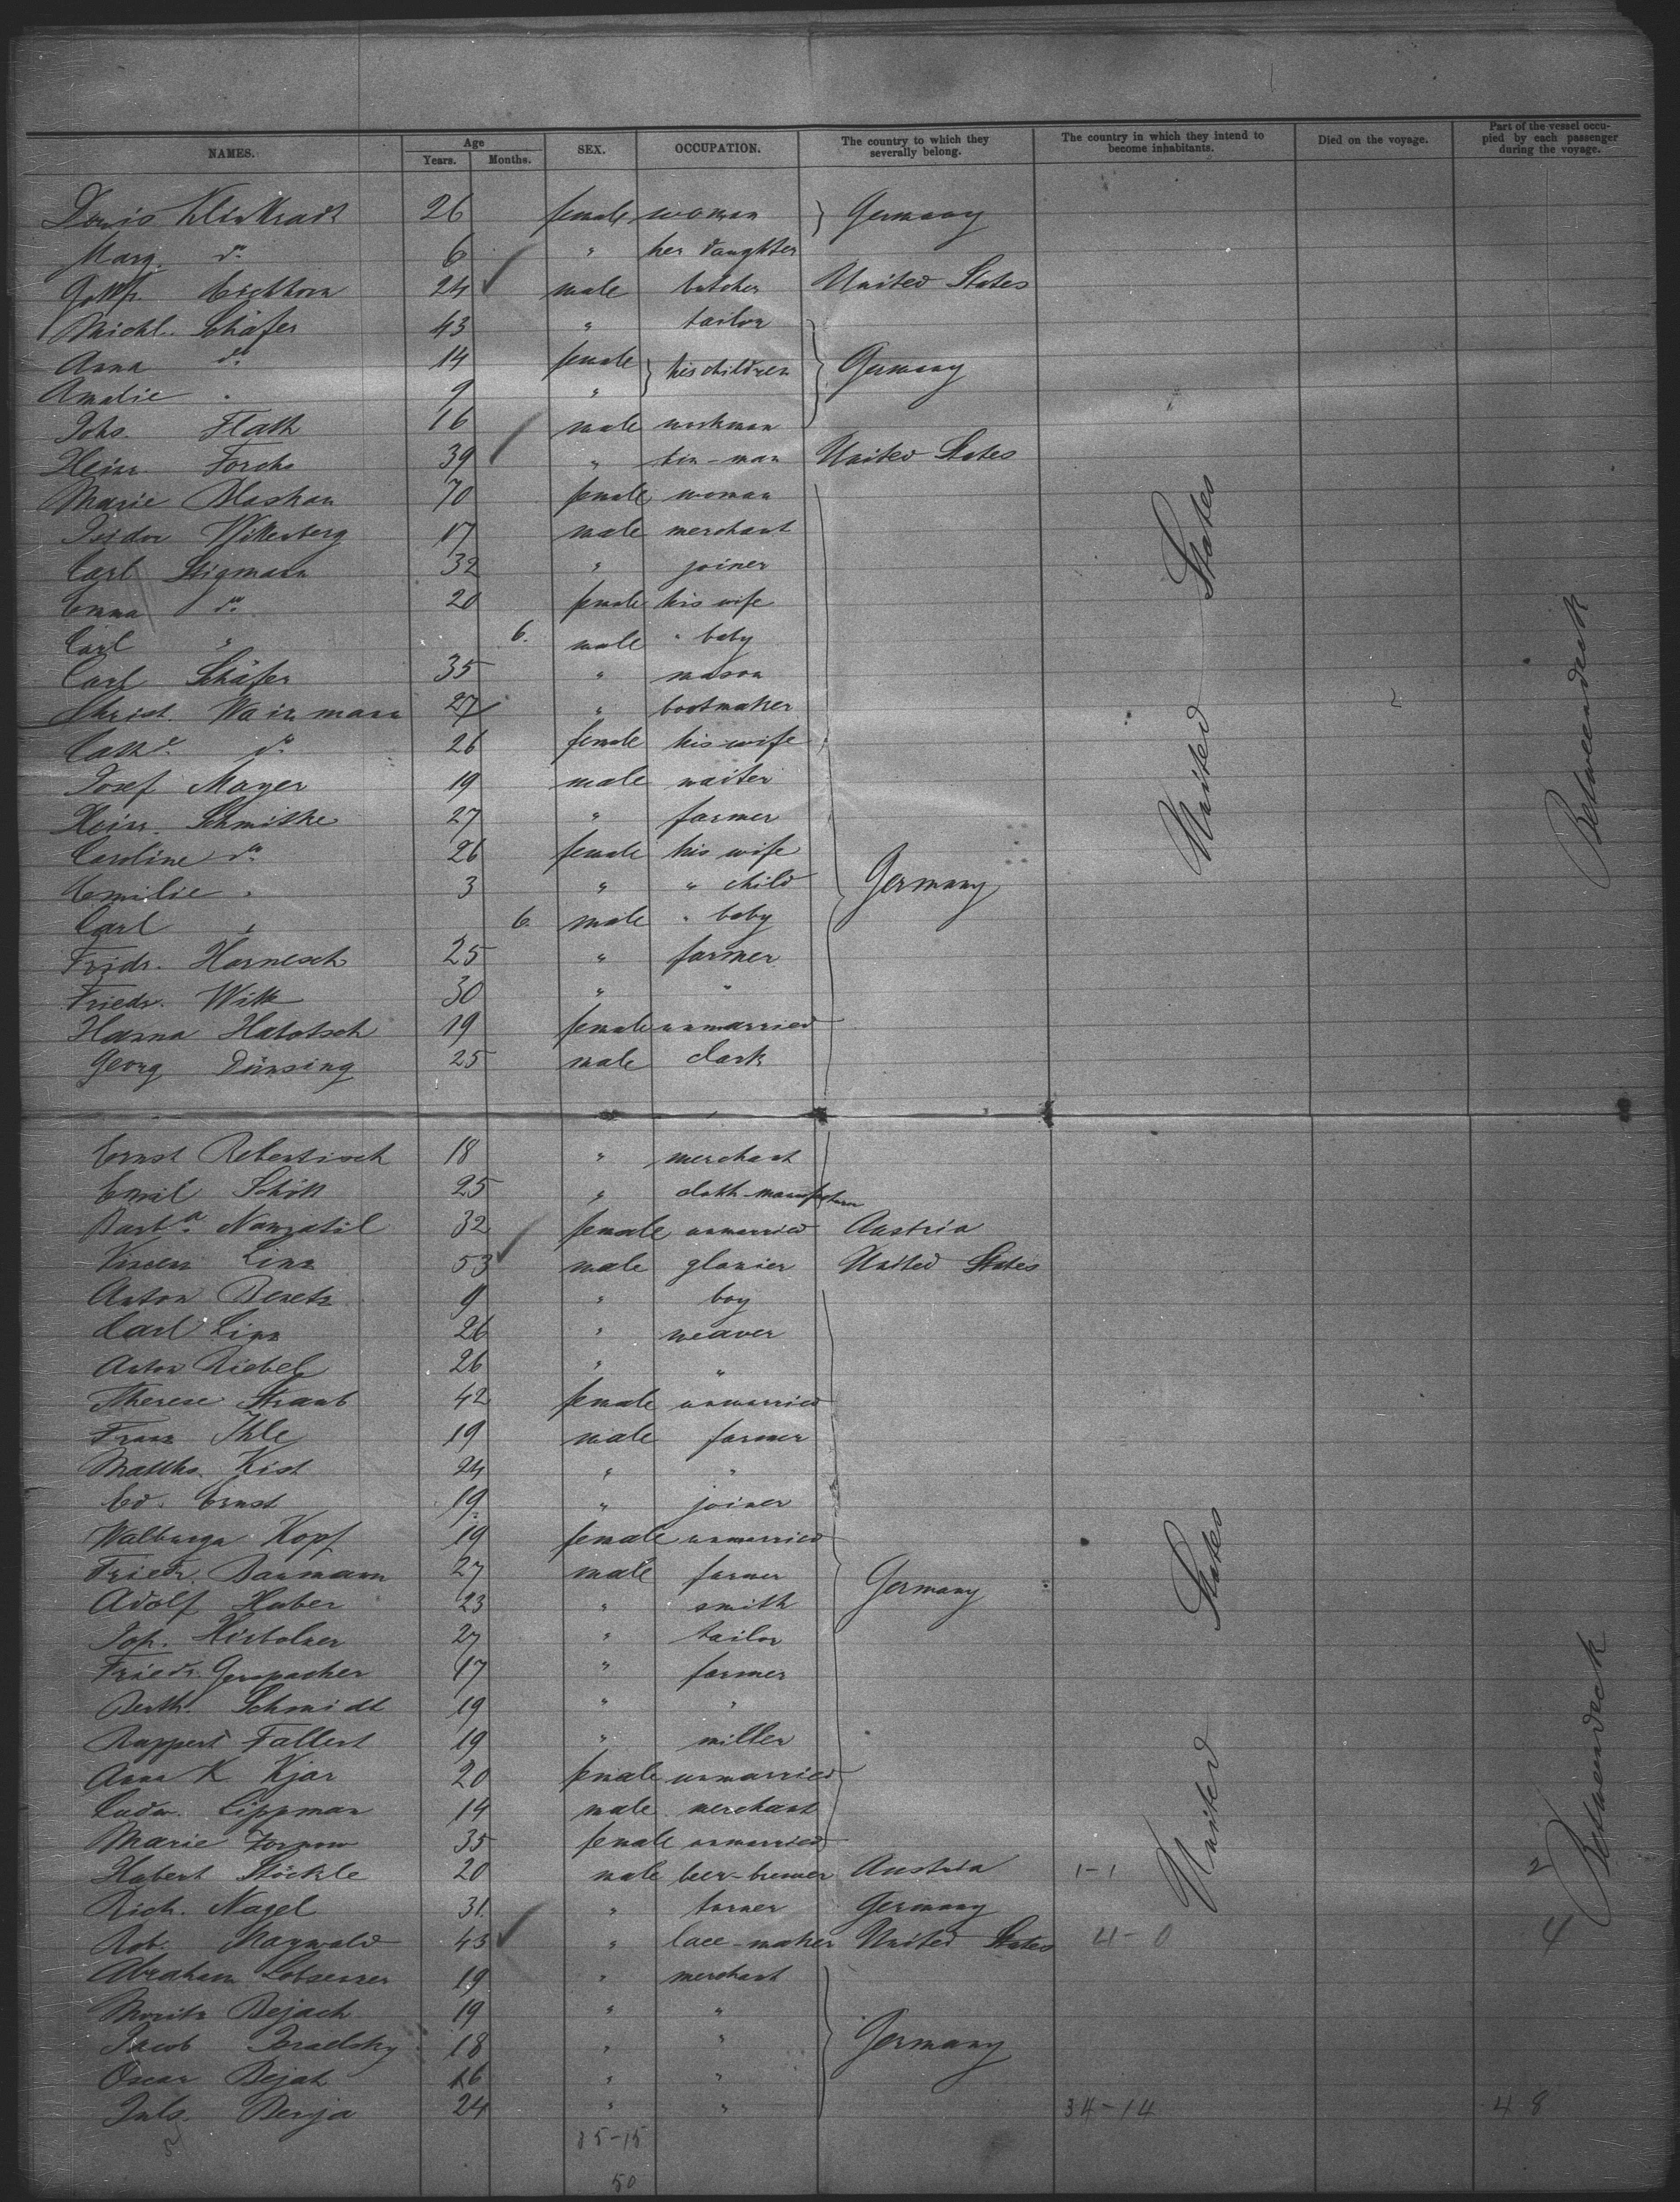 NAMES. Age Years. Months. SEX. OCCUPATION. The country to which they severally belong. The country in which they intend to become inhabitants. Died on the voyage. Part of the vessel occupied by each passenger during the voyage.
26 female woman } Germany
Marg. do 6 " her daughter
24 male butcher United States
Michl. Schäfer 43 " tailor
Anna do 14 female } his children } Germany
Amalie " 9 "
Johs. Flath 16 male workman
Heinr. Forchs 39 " tin-man United States
Marie 70 female woman
Isidor Wittenberg 17 male merchant
Carl Stigmann 32 " joiner
Emma do 20 female his wife
Carl " 6. male " baby
Carl Schäfer 35 " mason
Christ. Wainmann 27 " bootmaker
Cathe. do 26 female his wife
Josef Mayer 19 male waiter
Heinr. Schmithe 27 " farmer
Caroline do 26 female his wife
Emilie " 3 " " child } Germany
Carl " 6 male " baby
Fridr. Harnesch 25 " farmer
Friedr. Witt 30 " "
Hanna Hatotsch 19 female unmarried
Georg Dünsing 25 male clark
United States
Betweendeck
Ernst Rebentisch 18 " merchant
Emil Schött 25 " cloth-manufacturer
Barba. Navratil 32 female unmarried Austria
Vincenz Linz 53 male glazier United States
Anton 9 " boy
Carl Linz 26 " weaver
Anton Riebel 26 " "
Therese Straub 42 female unmarried
Franz Ihle 19 male farmer
Matths. Kist 24 " "
Ed. Ernst 19 " joiner
Walburga Kopf 19 female unmarried
Friedr. Baumann 27 male farmer } Germany
Adolf Huber 23 " smith
Joh. 27 " tailor
Friedr. Gerspacher 17 " farmer
Berth. Schmidt 19 " "
Ruppert Fallert 19 " miller
Anna K. Kjar 20 female unmarried
Ludw. Lippman 14 male merchant
Marie Zornow 35 female unmarried
Hubert Stöckle 20 male beer-brewer Austria 1-1 2
Rich. Nagel 31. " turner Germany
Rob. Maywald 43 " lace-maker United States 4-0 4
Abraham Lobsenzer 19 " merchant
Moritz Bejach 19 " "
Jacob Israelsky 18 " " } Germany
Oscar Bejach 16 " "
Juls. Benja 24 " " 34-14 48
United States
Betweendeck
35-15
50